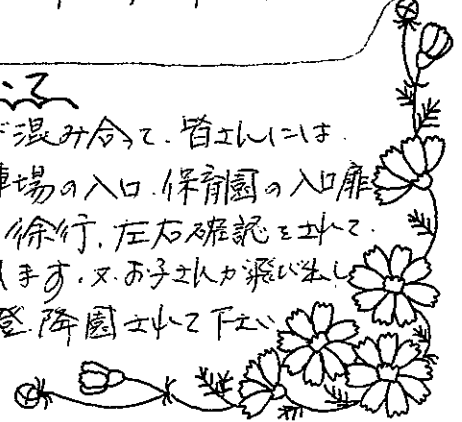 いて
混み合って.皆さんには.
車場の入口.保育園の入口扉
徐行.左右確認をされて.
ます.又.お子さんが飛び出し
登.降園されて下さい